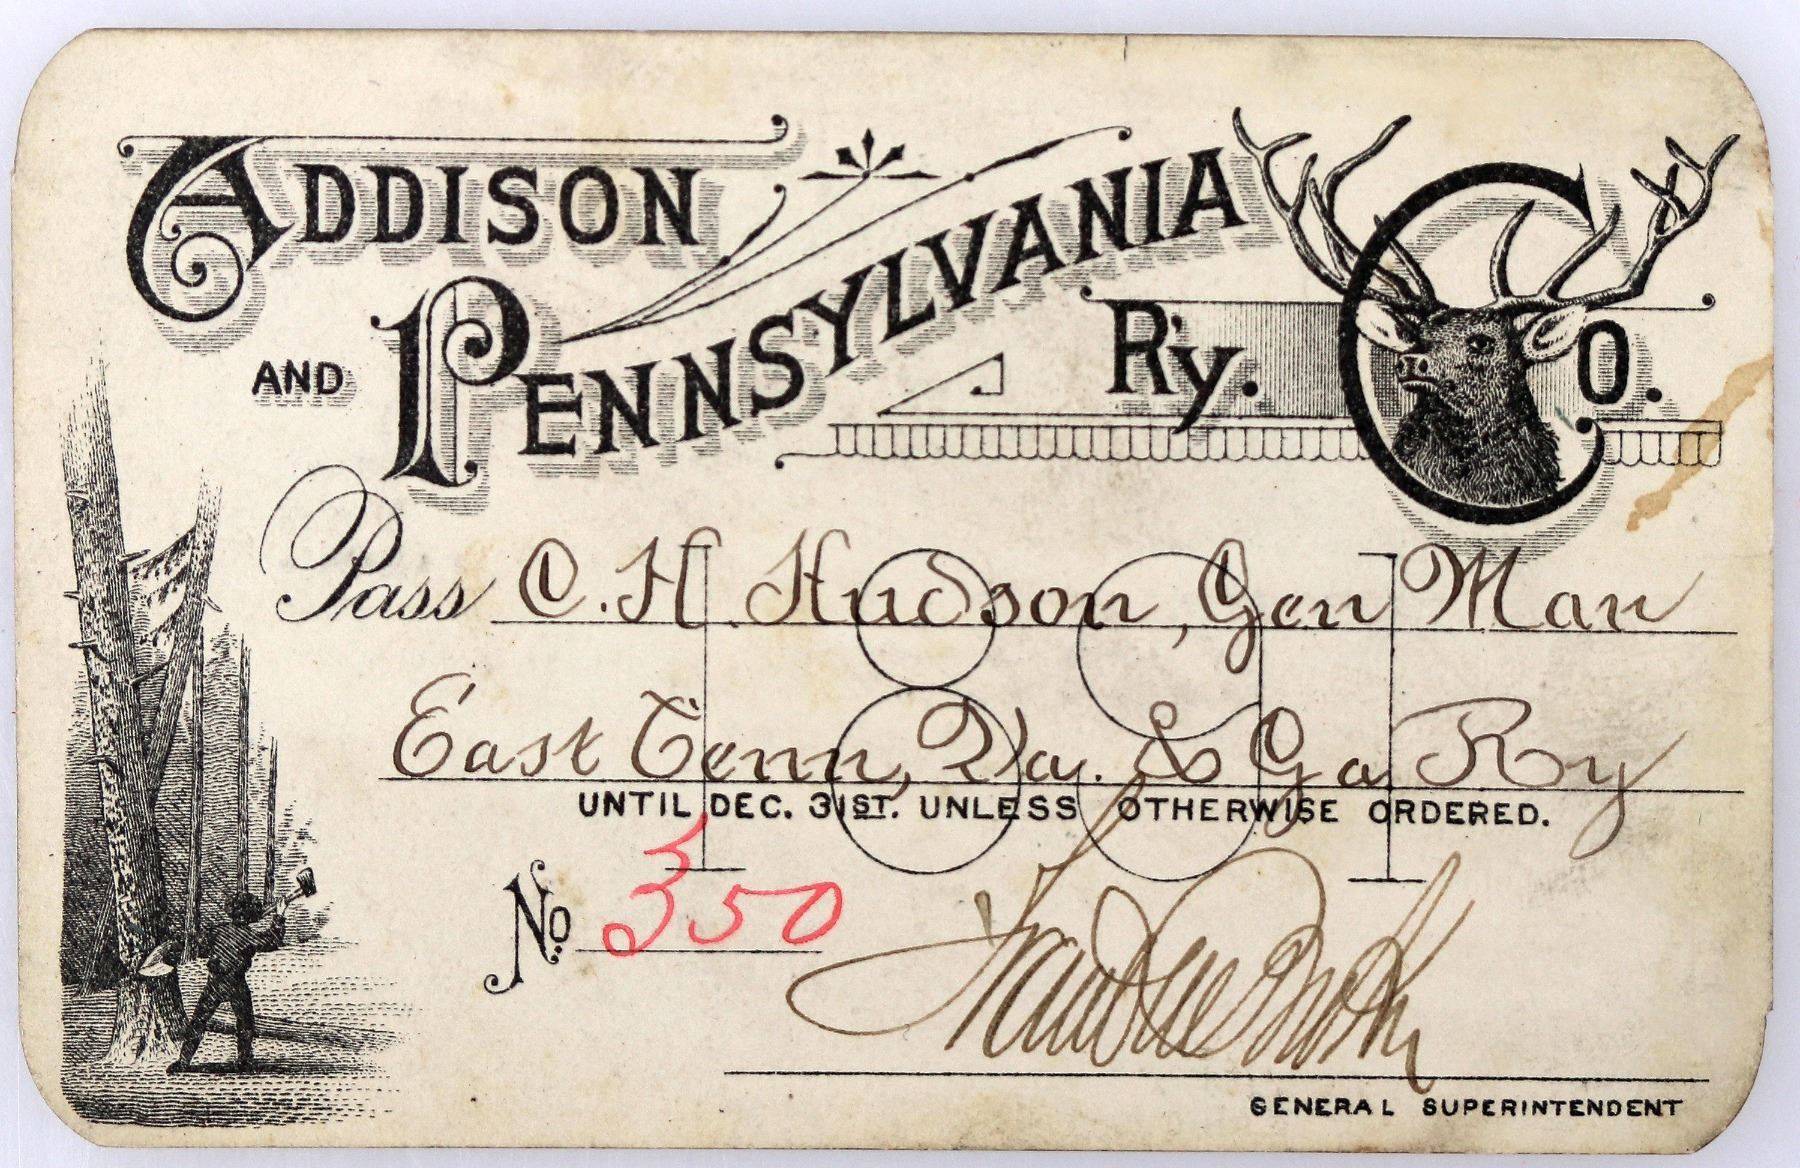 ADDISON
AND PENNSYLVANIA R'y. CO.
Pass C. H. Hudson, Gen Man
East Tenn, Va. & Ga Ry
1891
UNTIL DEC. 31ST. UNLESS OTHERWISE ORDERED.
No. 350
GENERAL SUPERINTENDENT